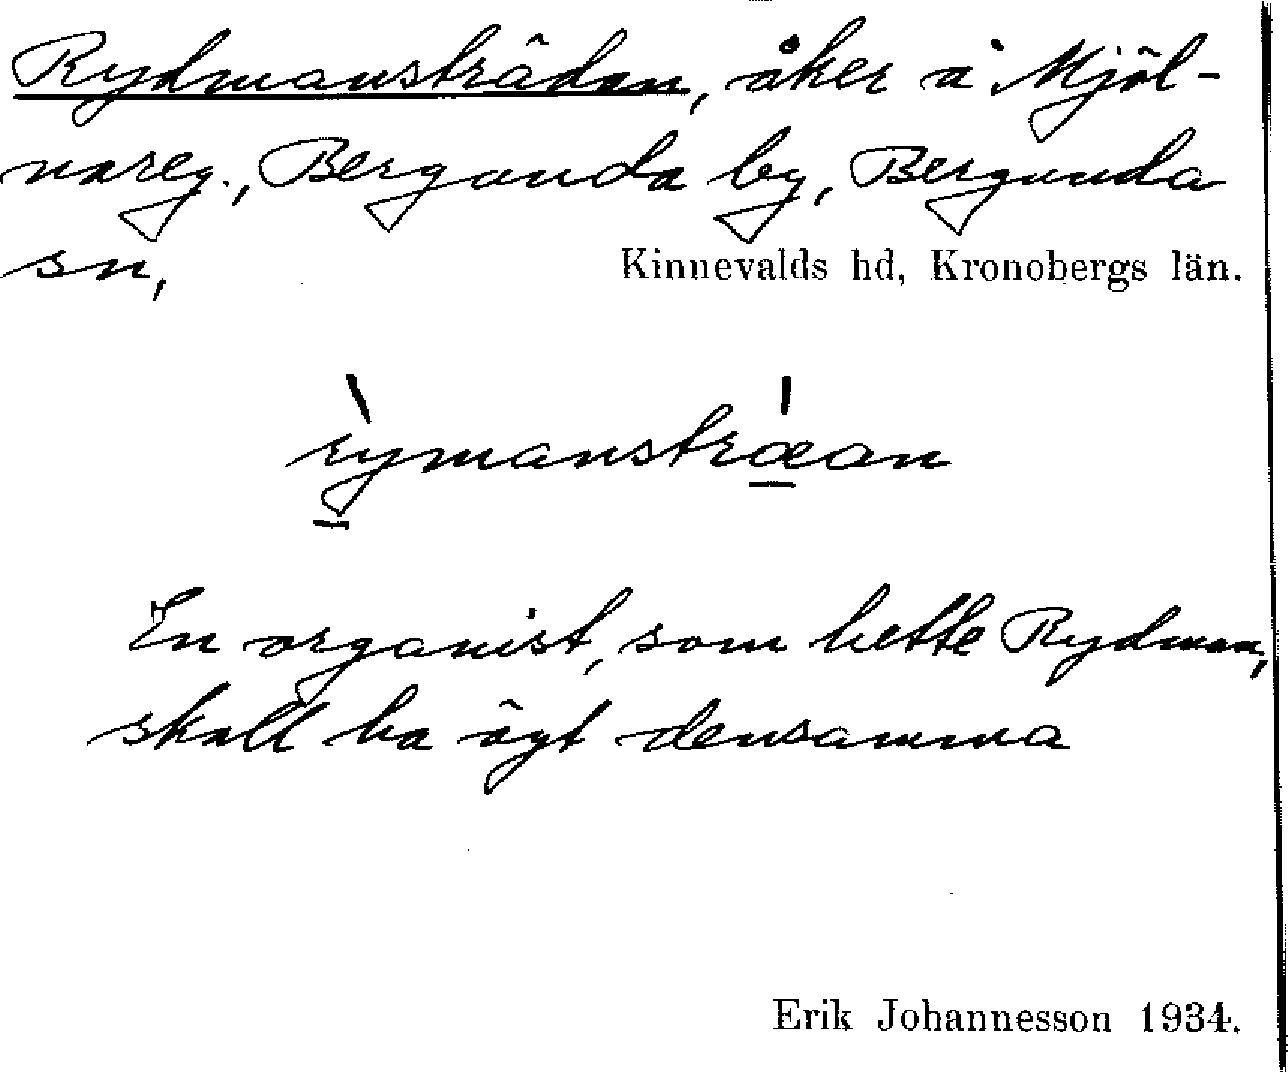 Rydmansträdan, åker å Mjöl-
nareg., Bergunda by, Bergunda
sn,
Kinnevalds hd, Kronobergs län.
rỳmanstræ̍an
En organist, som hette Rydman,
skall ha ägt densamma
Erik Johannesson 1934.